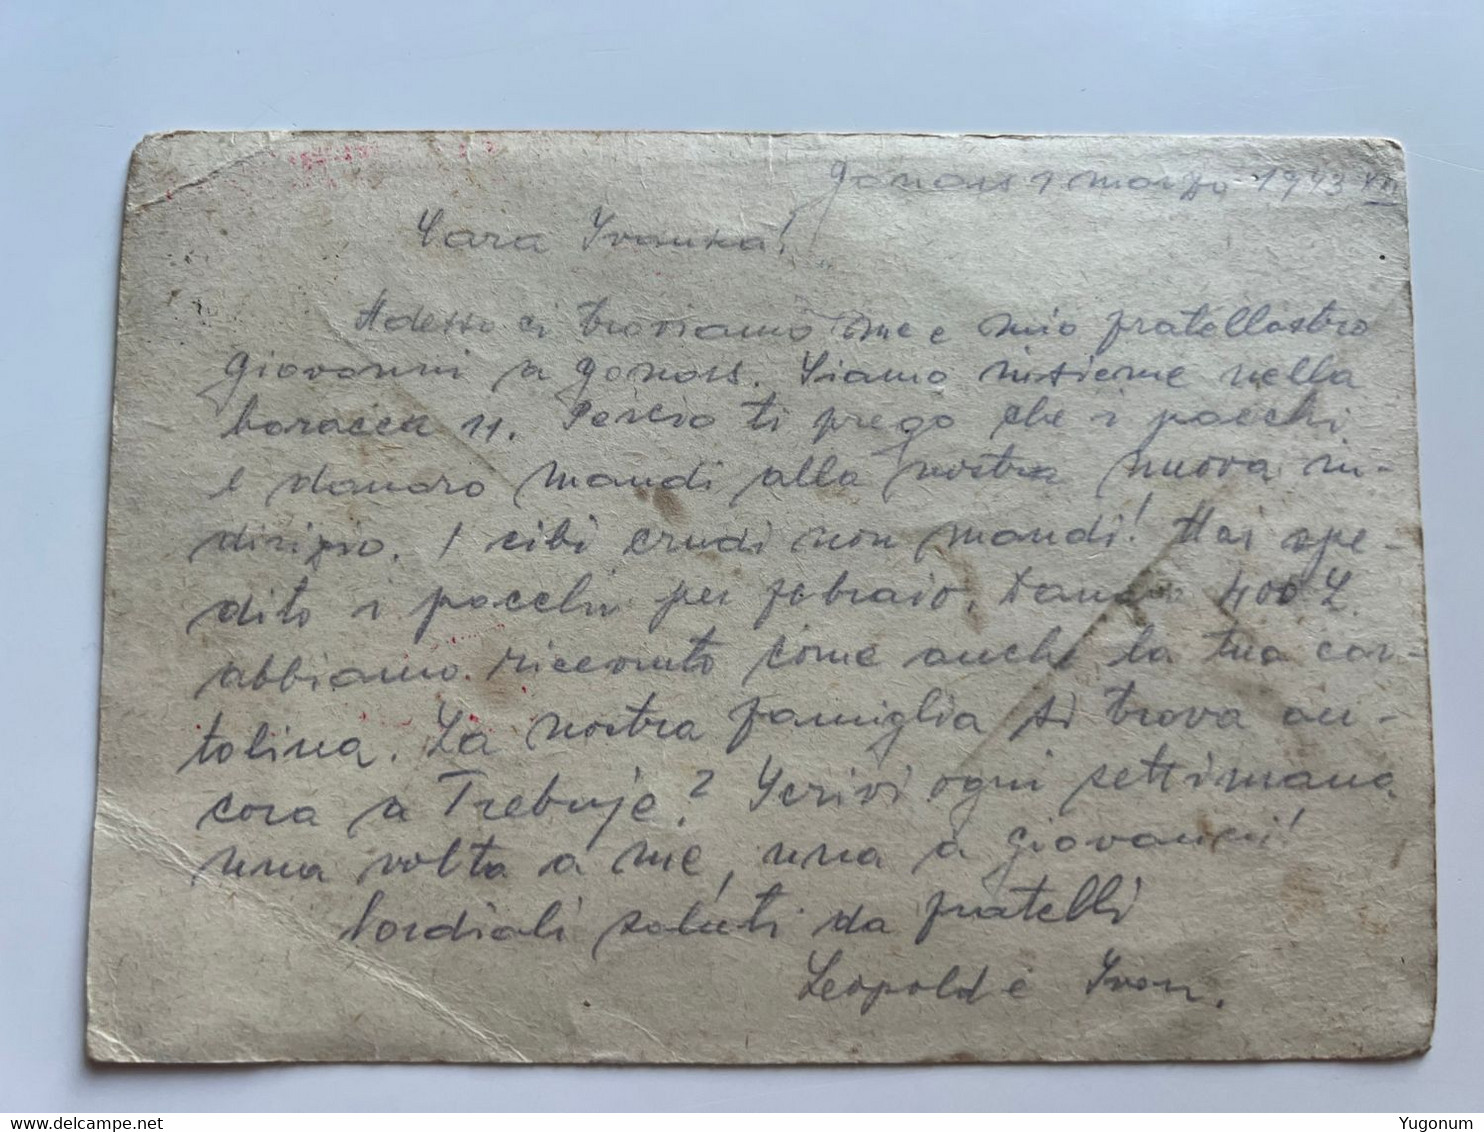 Gonars 1 marzo 1943 XXI
Cara Ivanka!
Adesso ci troviamo me e mio fratellastro
Giovanni a Gonars. Siamo insieme nella
baracca 11. Perciò ti prego che i pacchi
e danaro mandi alla nostra nuova in-
dirizzo. I cibi crudi non mandi! Hai spe-
dito i pacchi per febraio, 400 L.
abbiamo riccevuto come anche la tua car-
tolina. La nostra famiglia si trova an-
cora a Trebnje? Scrivi ogni settimana
una volta a me, una a Giovanni!
Cordiali saluti da fratelli
Leopold e Ivan.
delcampe.net
Yugonum